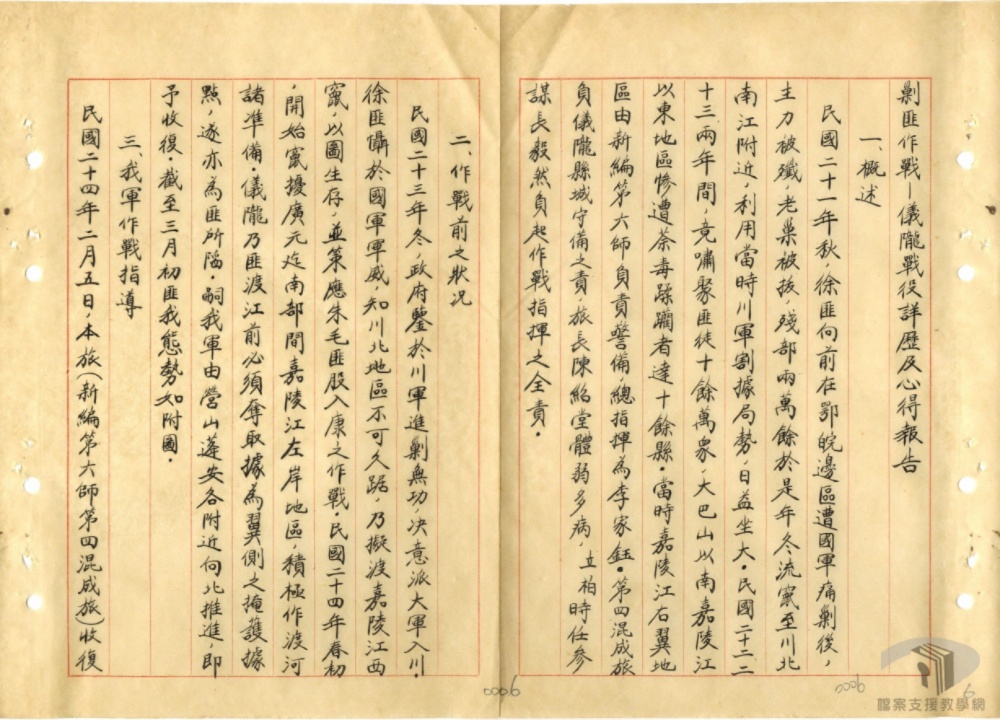 剿匪作戰—儀隴戰役詳歷及心得報告
一、概述
民國二十一年秋，徐匪向前在鄂皖邊區遭國軍痛剿後，
主力被殲，老巢被拔，殘部兩萬餘於是年冬流竄至川北
南江附近，利用當時川軍割據局勢，日益坐大。民國二十二
十三兩年間，竟嘯聚匪徒十餘萬衆，大巴山以南嘉陵江
以東地區慘遭荼毒蹂躪者達十餘縣。當時嘉陵江右翼地
區由新編第六師負責警備，總指揮為李家鈺。第四混成旅
負儀隴縣城守備之責，旅長陳紹堂體弱多病，立柏時任參
謀長毅然負起作戰指揮之全責。
二、作戰前之狀况
民國二十三年冬，政府鑒於川軍進剿無功，决意派大軍入川。
徐匪懾於國軍軍威，知川北地區不可久踞，乃擬渡嘉陵江西
竄，以圖生存，並策應朱毛匪股入康之作戰。民國二十四年春初
，開始竄擾廣元迄南部間嘉陵江左岸地區，積極作渡河
諸準備。儀隴乃匪渡江前必須奪取據為翼側之掩護據
點，遂亦為匪所陷。嗣我軍由營山蓬安各附近向北推進，即
予收復。截至三月初匪我態勢如附圖。
三、我軍作戰指導
民國二十四年二月五日，本旅（新編第六師第四混成旅）收復
0006
0006
6
檔案支援教學網